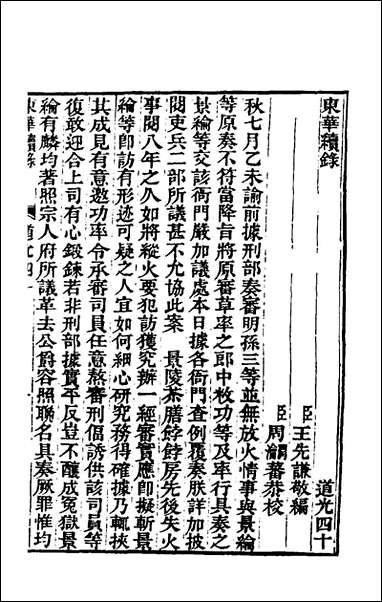 東華續錄
道光四十
臣王先謙敬編
臣周瀹蕃恭校
秋七月乙未諭前據刑部奏審明孫三等並無放火情事與景綸
等原奏不符當降旨將原審草率之郎中枚功等及率行具奏之
景綸等交該衙門嚴加議處本日據各衙門查例覆奏朕詳加披
閱吏兵二部所議甚不允協此案 景陵茶膳餑餑房先後失火
事閱八年之久如將縱火要犯訪獲究辦一經審實應即擬斬景
綸等即訪有形迹可疑之人宜如何細心研究務得確據乃輒挾
其成見有意邀功率令承審司員任意熬審刑偪誘供該司員等
復敢迎合上司有心鍛鍊若非刑部據實平反豈不釀成冤獄景
綸有麟均著照宗人府所議革去公爵容照聯名具奏厥罪惟均
東華續錄 道光四十 一